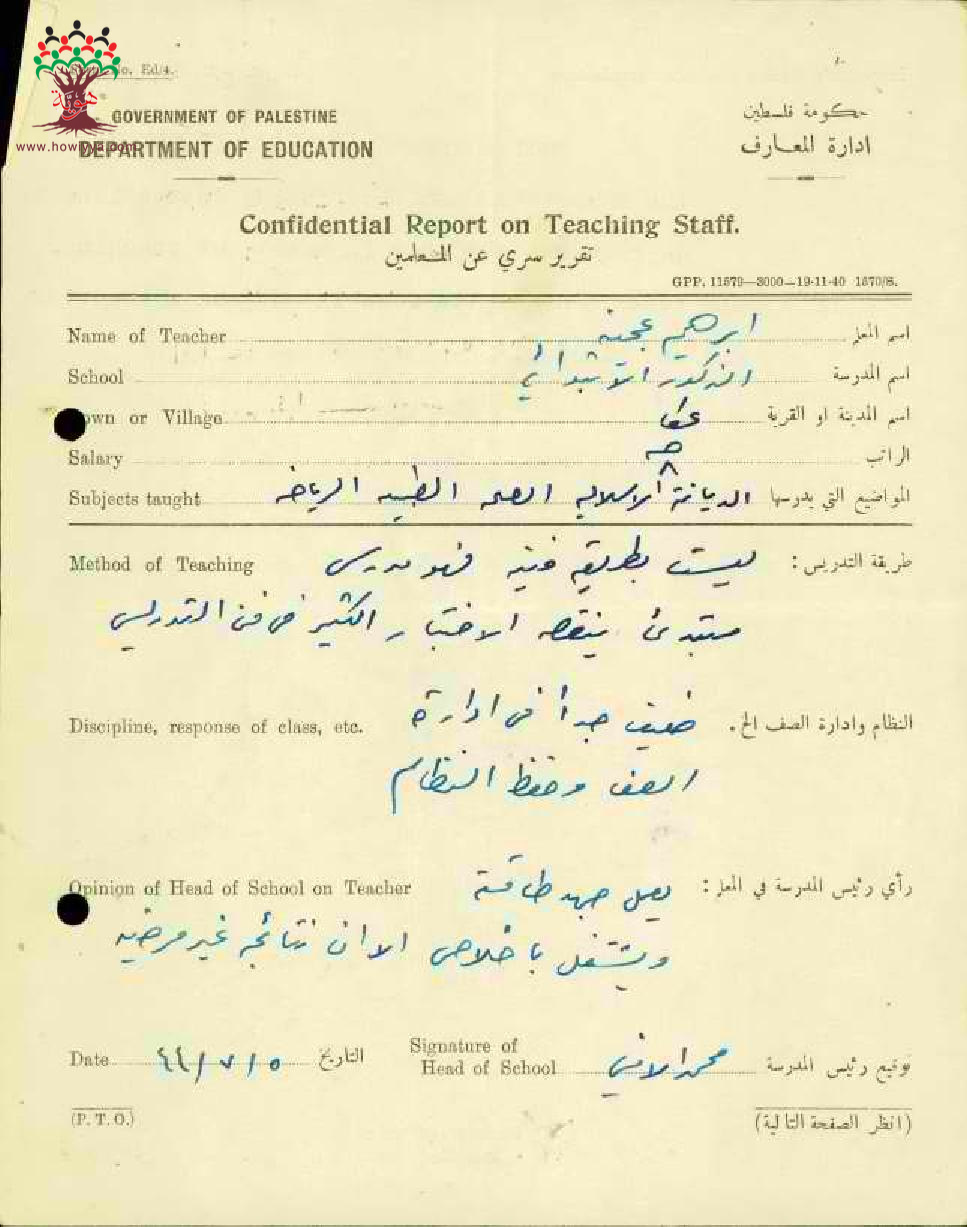 No. Ed/4.
GOVERNMENT OF PALESTINE
حكومة فلسطين
www.howiyya.com
DEPARTMENT OF EDUCATION
ادارة المعارف
Confidential Report on Teaching Staff.
تقرير سري عن المعلمين
GPP. 11579—3000—19-11-40 1570/S.
Name of Teacher ابرهيم عجينه اسم المعلم
School الذكور الابتدائي اسم المدرسة
Town or Village عكا اسم المدينة او القرية
Salary ٨ الراتب
Subjects taught الديانة الاسلاميه الصحه الطبيعه الرياضه المواضيع التي يدرسها
Method of Teaching ليست بطريقه فنيه فهو مدرس طريقة التدريس :
مبتدئ ينقصه الاختبار الكثير في فن التدريس
Discipline, response of class, etc. ضعيف جداً في ادارة النظام وادارة الصف الخ.
الصف وحفظ النظام
Opinion of Head of School on Teacher يعمل جهد طاقته رأي رئيس المدرسة في المعلم :
ويشتغل باخلاص الا ان نتائجه غير مرضيه
Date ٥/٧/٤٤ التاريخ Signature of Head of School محمد توقيع رئيس المدرسة
(P. T. O.) (انظر الصفحة التالية)